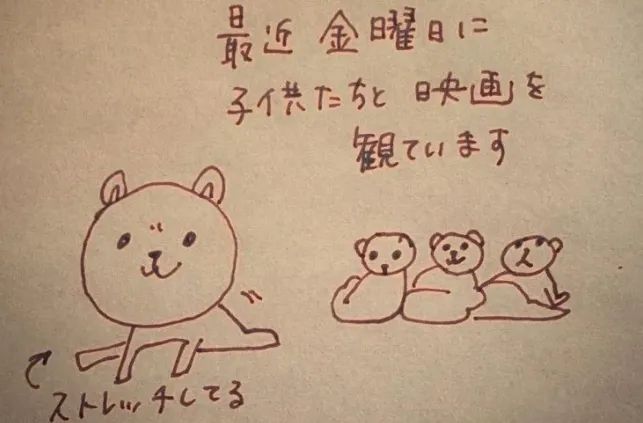 最近 金曜日に
子供たちと 映画を
観ています
ストレッチしてる